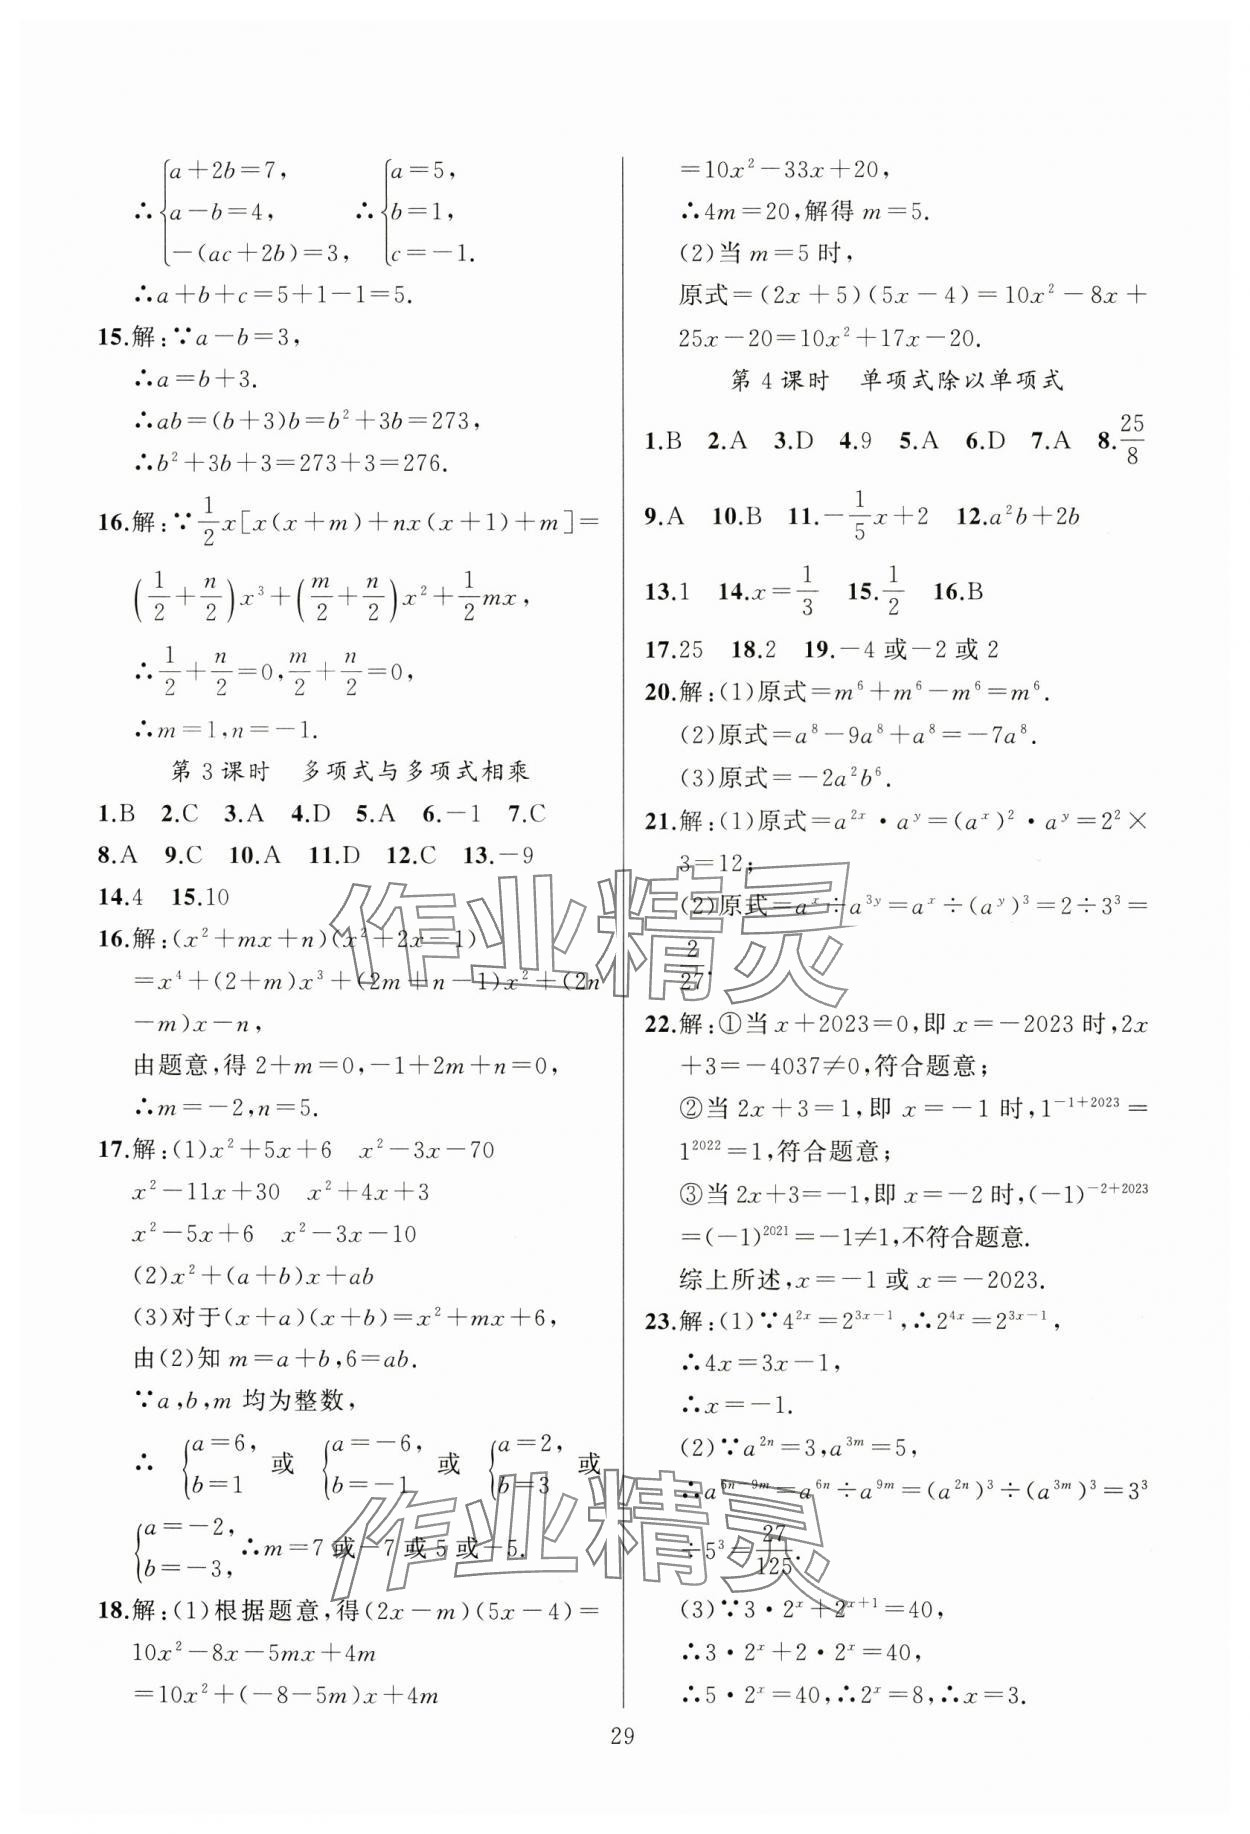 ∴{a+2b=7, a-b=4, -(ac+2b)=3, ∴{a=5, b=1, c=-1.
∴a+b+c=5+1-1=5.
15.解:∵a-b=3,
∴a=b+3.
∴ab=(b+3)b=b²+3b=273,
∴b²+3b+3=273+3=276.
16.解:∵1/2x[x(x+m)+nx(x+1)+m]=
(1/2+n/2)x³+(m/2+n/2)x²+1/2mx,
∴1/2+n/2=0,m/2+n/2=0,
∴m=1,n=-1.
第3课时 多项式与多项式相乘
1.B 2.C 3.A 4.D 5.A 6.-1 7.C
8.A 9.C 10.A 11.D 12.C 13.-9
14.4 15.10
16.解:(x²+mx+n)(x²+2x-1)
=x⁴+(2+m)x³+(2m+n-1)x²+(2n
-m)x-n,
由题意,得2+m=0,-1+2m+n=0,
∴m=-2,n=5.
17.解:(1)x²+5x+6 x²-3x-70
x²-11x+30 x²+4x+3
x²-5x+6 x²-3x-10
(2)x²+(a+b)x+ab
(3)对于(x+a)(x+b)=x²+mx+6,
由(2)知m=a+b,6=ab.
∵a,b,m均为整数,
∴{a=6, b=1 或 {a=-6, b=-1 或 {a=2, b=3 或
{a=-2, b=-3, ∴m=7或-7或5或-5.
18.解:(1)根据题意,得(2x-m)(5x-4)=
10x²-8x-5mx+4m
=10x²+(-8-5m)x+4m
=10x²-33x+20,
∴4m=20,解得m=5.
(2)当m=5时,
原式=(2x+5)(5x-4)=10x²-8x+
25x-20=10x²+17x-20.
第4课时 单项式除以单项式
1.B 2.A 3.D 4.9 5.A 6.D 7.A 8.25/8
9.A 10.B 11.-1/5x+2 12.a²b+2b
13.1 14.x=1/3 15.1/2 16.B
17.25 18.2 19.-4或-2或2
20.解:(1)原式=m⁶+m⁶-m⁶=m⁶.
(2)原式=a⁸-9a⁸+a⁸=-7a⁸.
(3)原式=-2a²b⁶.
21.解:(1)原式=a^{2x}·a^y=(a^x)²·a^y=2²×
3=12;
(2)原式=a^x÷a^{3y}=a^x÷(a^y)³=2÷3³=
2/27.
22.解:①当x+2023=0,即x=-2023时,2x
+3=-4037≠0,符合题意;
②当2x+3=1,即x=-1时,1^{-1+2023}=
1^{2022}=1,符合题意;
③当2x+3=-1,即x=-2时,(-1)^{-2+2023}
=(-1)^{2021}=-1≠1,不符合题意.
综上所述,x=-1或x=-2023.
23.解:(1)∵4^{2x}=2^{3x-1},∴2^{4x}=2^{3x-1},
∴4x=3x-1,
∴x=-1.
(2)∵a^{2n}=3,a^{3m}=5,
∴a^{6n-9m}=a^{6n}÷a^{9m}=(a^{2n})³÷(a^{3m})³=3³
÷5³=27/125.
(3)∵3·2^x+2^{x+1}=40,
∴3·2^x+2·2^x=40,
∴5·2^x=40,∴2^x=8,∴x=3.
29
作业精灵
作业精灵